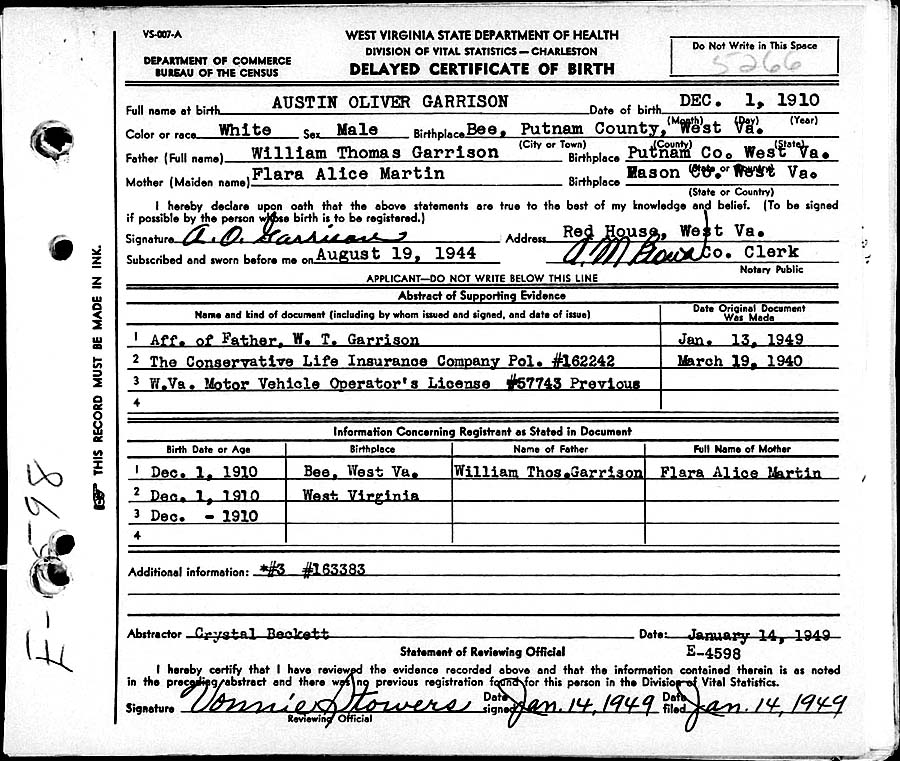 VS-007-A
WEST VIRGINIA STATE DEPARTMENT OF HEALTH
DIVISION OF VITAL STATISTICS—CHARLESTON
DEPARTMENT OF COMMERCE
BUREAU OF THE CENSUS
DELAYED CERTIFICATE OF BIRTH
Do Not Write in This Space
5266
Full name at birth AUSTIN OLIVER GARRISON Date of birth DEC. 1, 1910
(Month) (Day) (Year)
Color or race White Sex Male Birthplace Bee, Putnam County, West Va.
(City or Town) (County) (State)
Father (Full name) William Thomas Garrison Birthplace Putnam Co. West Va.
(State or Country)
Mother (Maiden name) Flara Alice Martin Birthplace Mason Co. West Va.
(State or Country)
I hereby declare upon oath that the above statements are true to the best of my knowledge and belief. (To be signed
if possible by the person whose birth is to be registered.)
Signature A. O. Garrison Address Red House, West Va.
Subscribed and sworn before me on August 19, 1944 Co. Clerk
Notary Public
APPLICANT—DO NOT WRITE BELOW THIS LINE
Abstract of Supporting Evidence
Name and kind of document (including by whom issued and signed, and date of issue) Date Original Document Was Made
1 Aff. of Father, W. T. Garrison Jan. 13, 1949
2 The Conservative Life Insurance Company Pol. #162242 March 19, 1940
3 W.Va. Motor Vehicle Operator's License #57743 Previous
4
Information Concerning Registrant as Stated in Document
Birth Date or Age Birthplace Name of Father Full Name of Mother
1 Dec. 1, 1910 Bee, West Va. William Thos.Garrison Flara Alice Martin
2 Dec. 1, 1910 West Virginia
3 Dec. - 1910
4
Additional information: *#3 #163383
Abstractor Crystal Beckett Date: January 14, 1949
Statement of Reviewing Official E-4598
I hereby certify that I have reviewed the evidence recorded above and that the information contained therein is as noted
in the preceding abstract and there was no previous registration found for this person in the Division of Vital Statistics.
Signature Vonnie Stowers Date signed Jan. 14, 1949 Date filed Jan. 14, 1949
Reviewing Official
THIS RECORD MUST BE MADE IN INK.